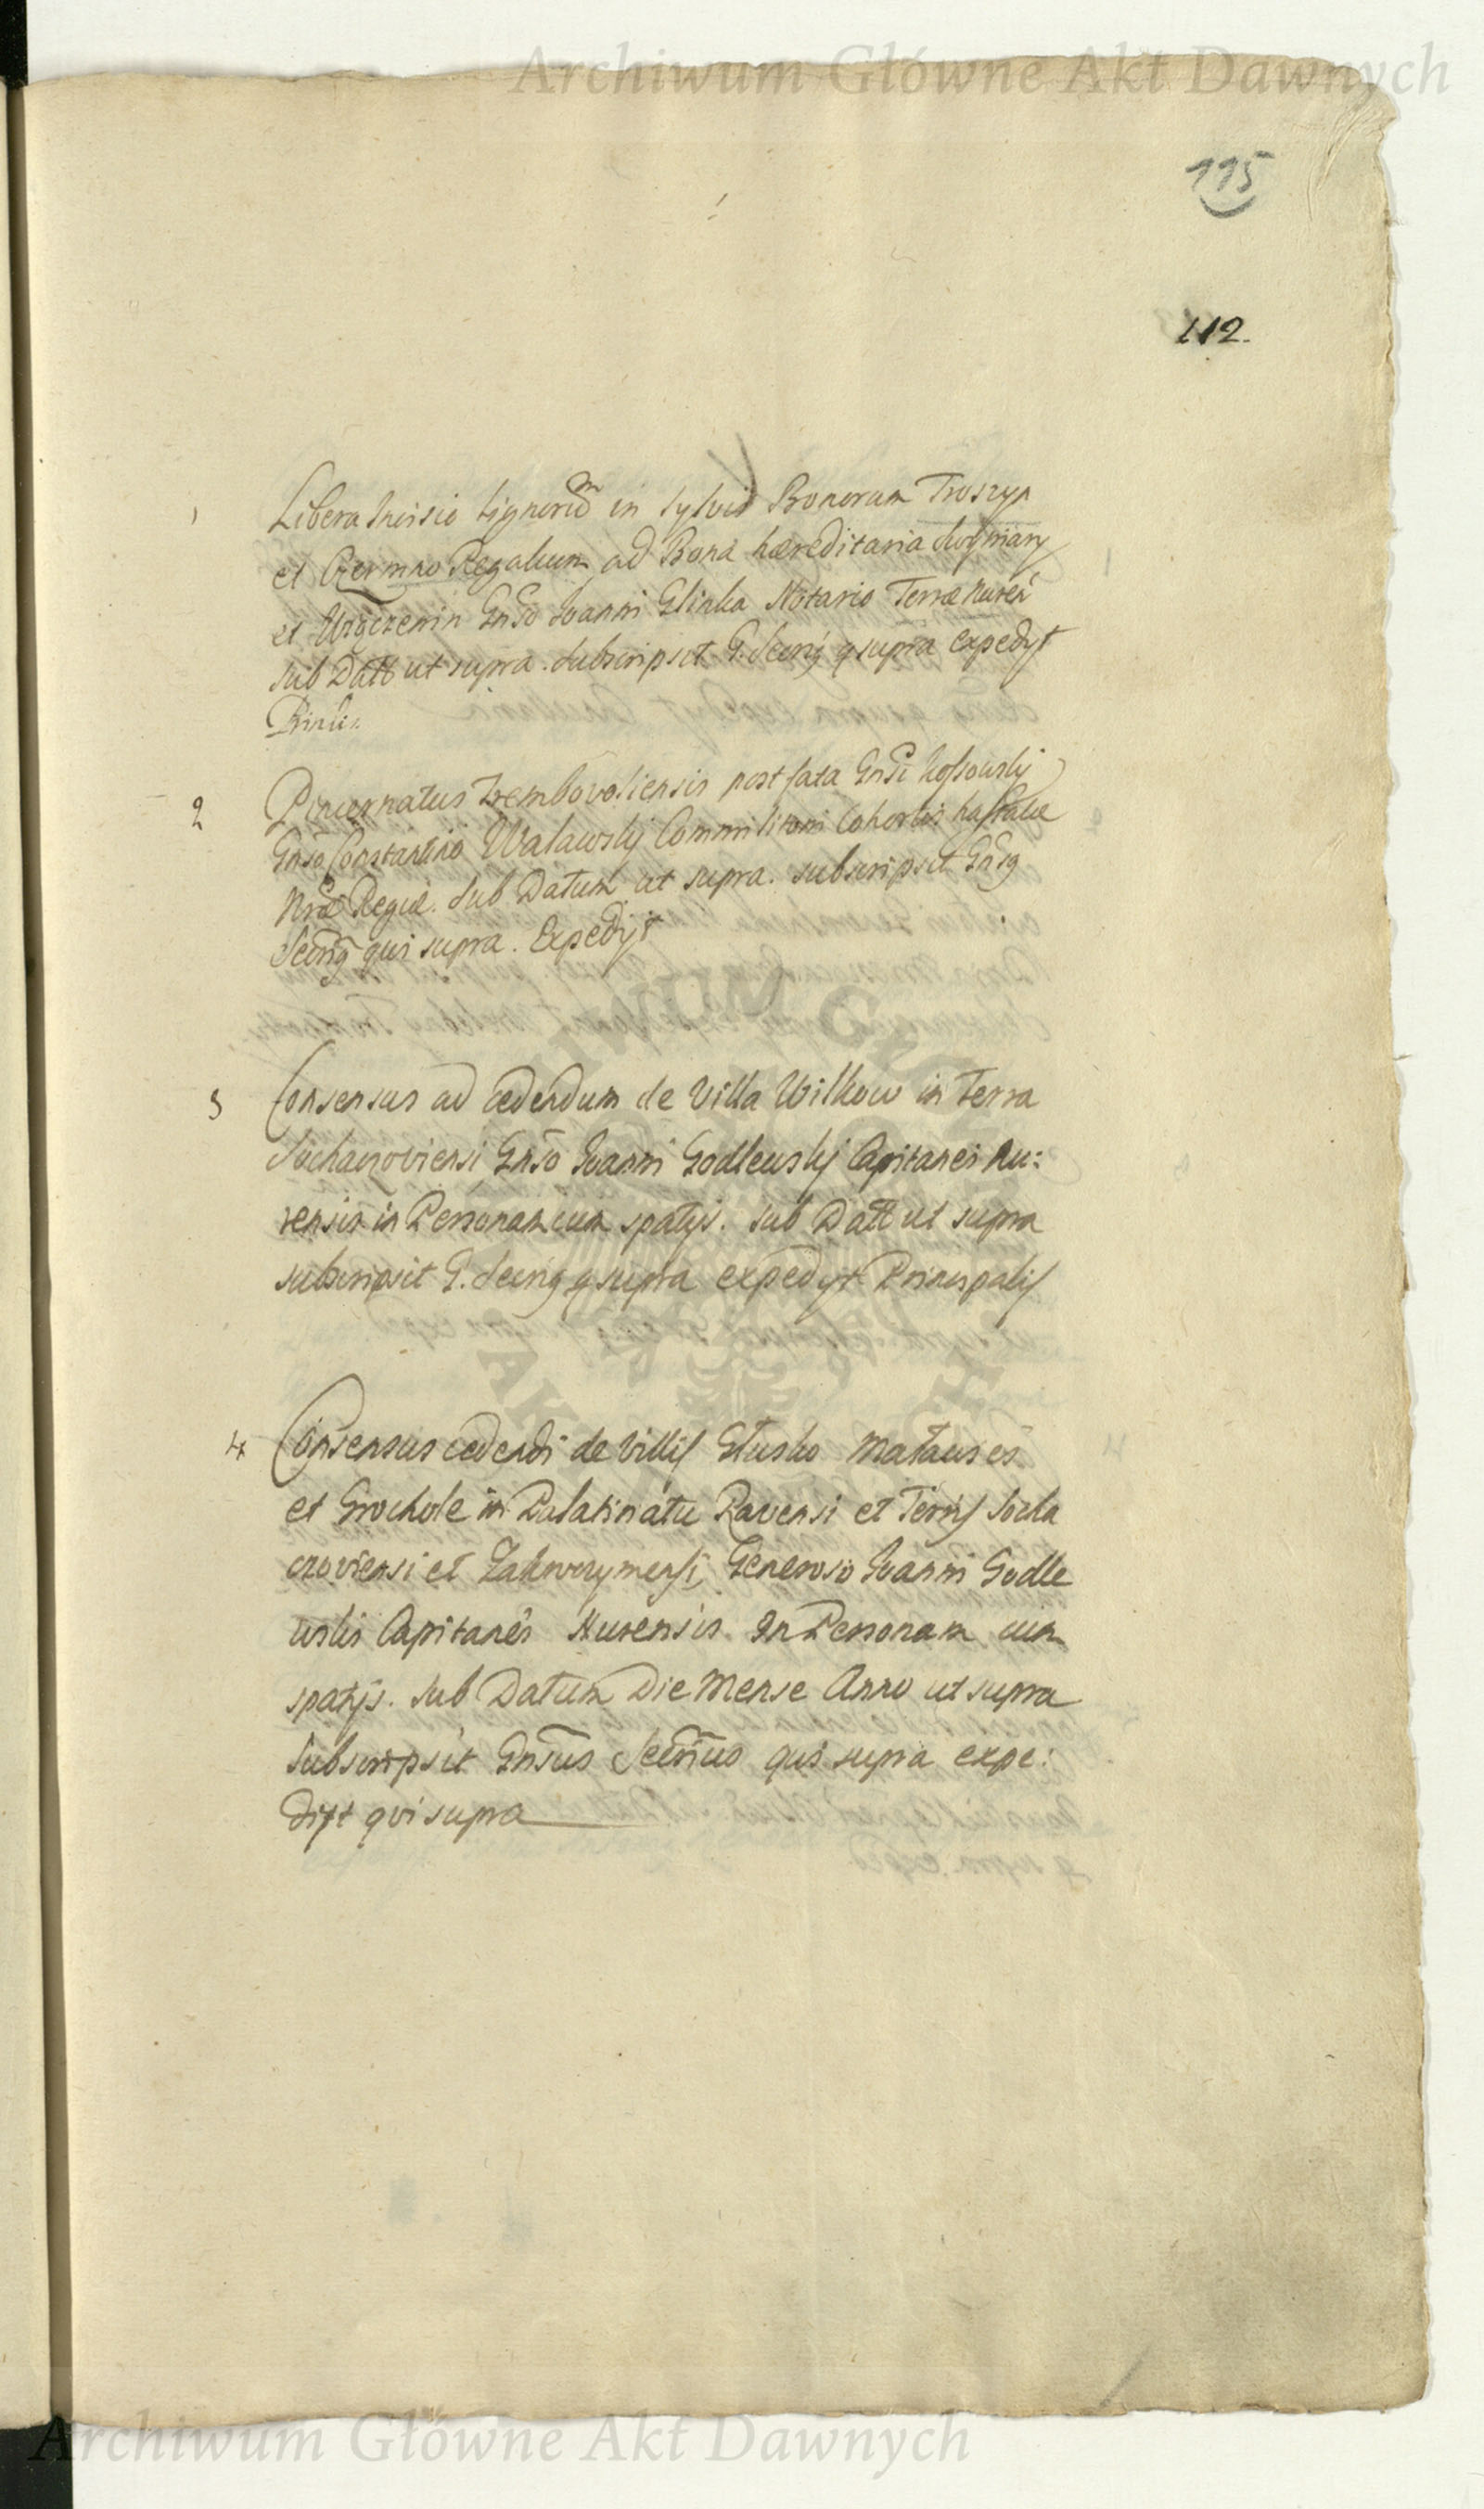 Archiwum Główne Akt Dawnych
115
112.
1 Libera Incisio lignorũ in sylvis Bonorum Troszyn
et Czermno Regalium ad Bona hæreditaria
et Gnso Ioanni Glinka Notario Terræ Nureń
sub Datt ut supra. Subscripsit G. Secrig q supra expedyt
2 Pincernatus Trembovoliensis post fata Gnsi Kossowskj
Gnso Constantino Walawskj Commilitoni Cohortis hastatæ
Nræ Regiæ. Sub Datum ut supra. subscripsit Gnsg
Secrig qui supra. Expedijt
3 Consensus ad cedendum de Villa Wilkow in Terra
Sochaczoviensi Gnso Ioanni Godlewskj Capitanei Nu:
rensis in Personam cum spatijs. sub Datt ut supra
subscripsit G. Secrig q supra expedyt Principalis
4 Consensus cedendi de Villis Głusko Matauses
et Grochole in Palatinatu Ravensi et Terris Socha
czoviensi et Generoso Ioanni Godle
wskis Capitanei Nurensis In Personam cum
spatijs. Sub Datum Die Mense Anno ut supra
Subscripsit Gnsus Secrius qui supra expe:
dijt qui supra
Archiwum Główne Akt Dawnych